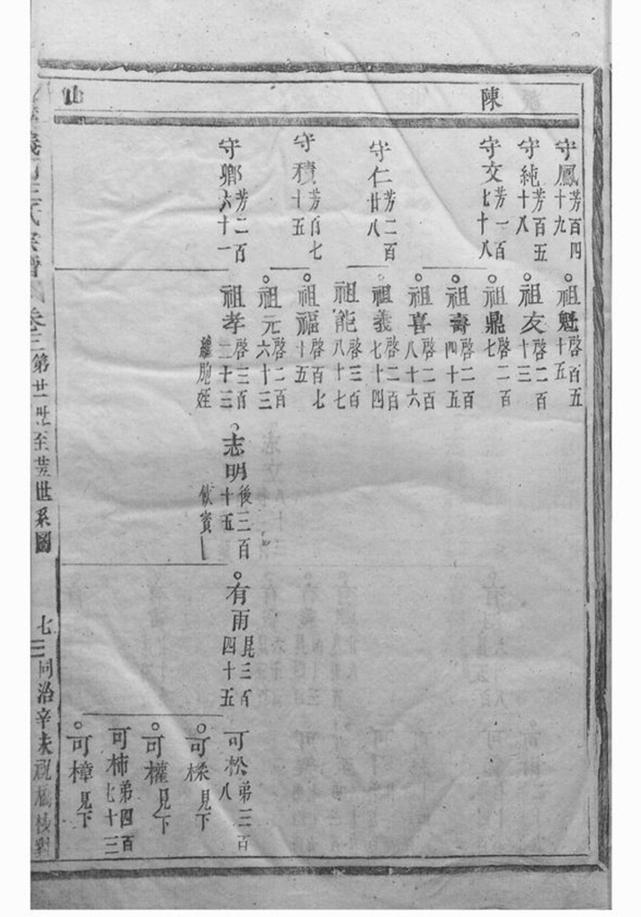 陳 山
守鳳 芳百四十九
守純 芳百五十八
守文 芳一百七十八
守仁 芳二百廿八
守積 芳百七十五
守鄉 芳二百六十一
祖魁 啓百五十五
祖友 啓二百十三
祖鼎 啓二百七
祖壽 啓二百四十五
祖喜 啓二百八十六
祖義 啓二百七十四
祖能 啓三百八十七
祖福 啓百七十五
祖元 啓二百六十三
祖孝 啓三百二十三 繼胞姪
志明 後三百十五 飲賓
有雨 昆三百四十五
可松 弟三百八
可樑 見下
可權 見下
可柿 弟四百七十三
可樟 見下
氏宗譜 卷三 第廿一世至廿五世系圖 七 同治辛未祝